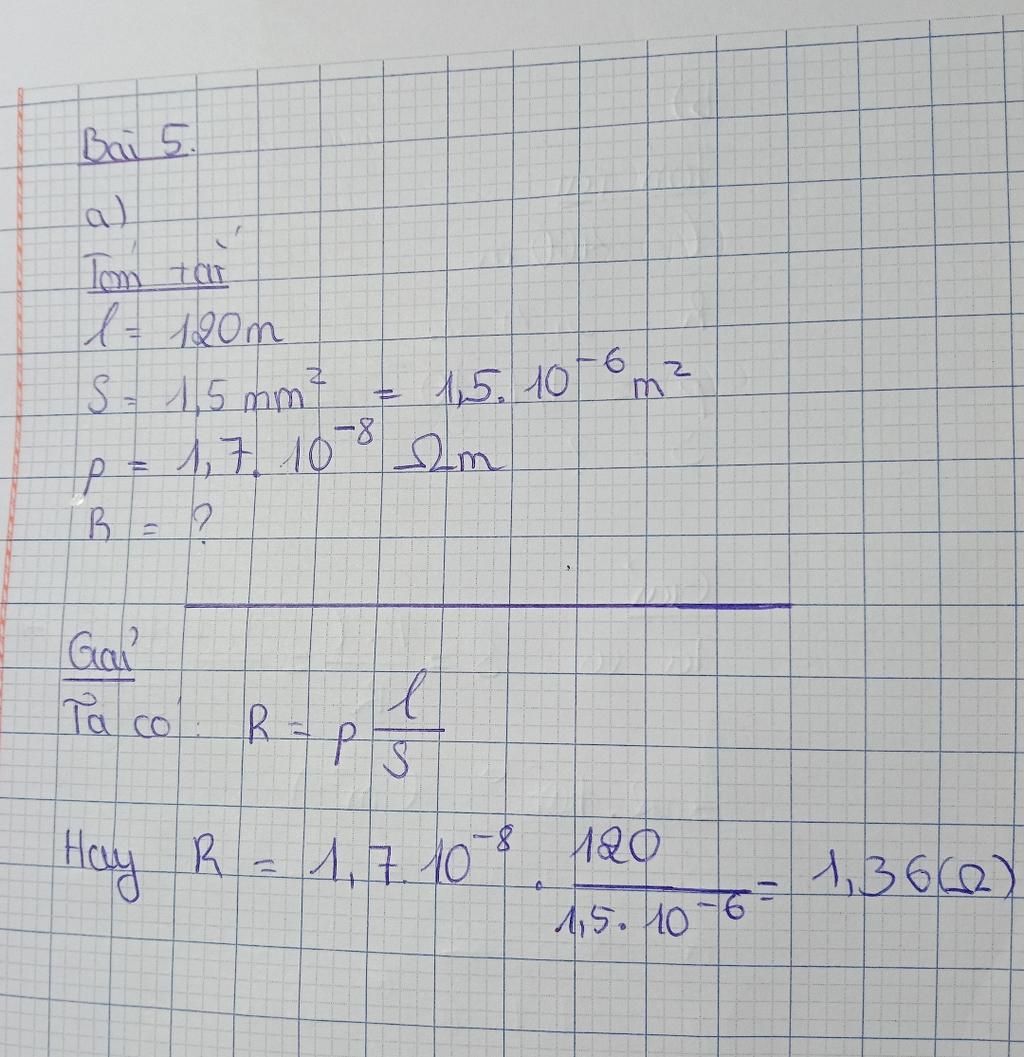 Bài 5.
a)
Tóm tắt
l = 120m
S = 1,5 mm² = 1,5. 10⁻⁶ m²
ρ = 1,7. 10⁻⁸ Ωm
R = ?
Gải
Ta có: R = ρ l/S
Hay R = 1,7. 10⁻⁸ . 120/(1,5. 10⁻⁶) = 1,36(Ω)